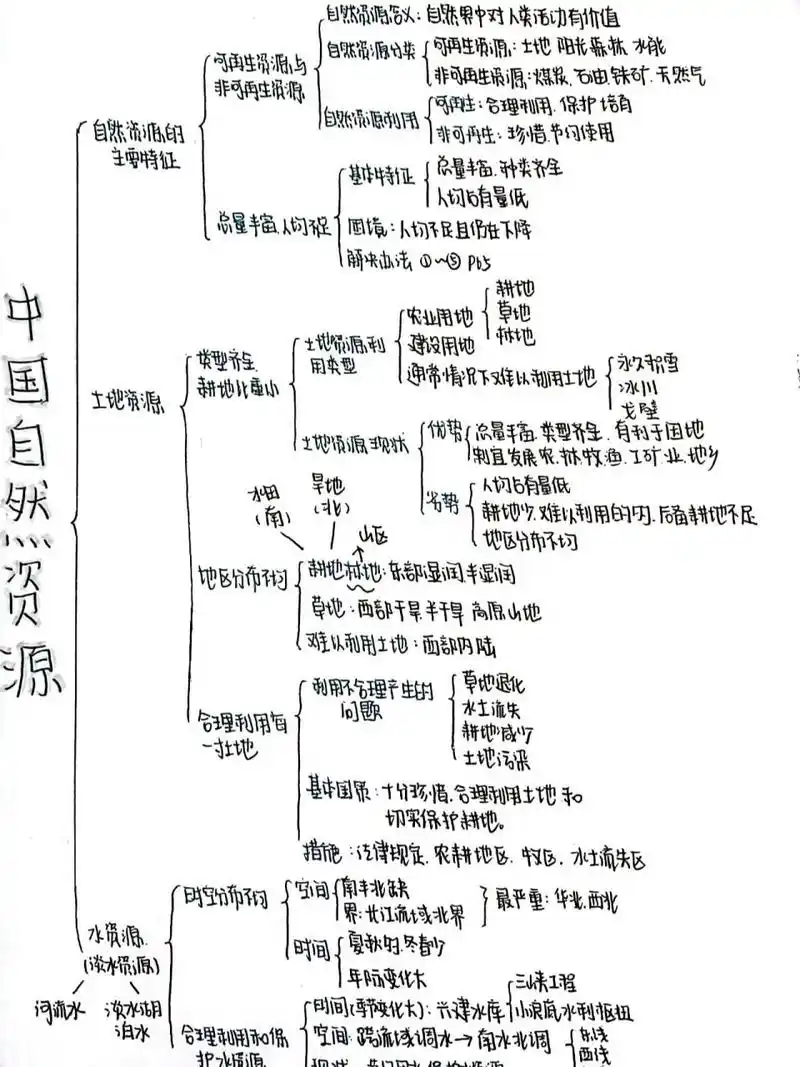 中国自然资源
自然资源的
主要特征
可再生资源与
非可再生资源
自然资源含义：自然界中对人类活动有价值
自然资源分类
可再生资源：土地 阳光 森林 水能
非可再生资源：煤炭、石油 铁矿、天然气
自然资源利用
可再生：合理利用、保护培育
非可再生：珍惜、节约使用
总量丰富、人均不足
基本特征
总量丰富、种类齐全
人均占有量低
困境：人均不足且仍在下降
解决办法 ①~⑤ P65
土地资源
类型齐全
耕地比重小
土地资源利
用类型
农业用地
耕地
草地
林地
建设用地
通常情况下难以利用土地
永久积雪
冰川
戈壁
土地资源现状
优势
总量丰富、类型齐全、有利于因地
制宜发展农、林、牧、渔、工矿业、地乡
劣势
人均占有量低
耕地少、难以利用的多、后备耕地不足
地区分布不均
水田
(南)
旱地
(北)
山区
地区分布不均
耕地林地：东部湿润、半湿润
草地：西部干旱、半干旱 高原山地
难以利用土地：西部内陆
合理利用每
一寸土地
利用不合理产生的
问题
草地退化
水土流失
耕地减少
土地污染
基本国策：十分珍惜、合理利用土地和
切实保护耕地。
措施：法律规定、农耕地区、牧区、水土流失区
水资源
(淡水资源)
河流水
淡水湖
泊水
时空分布不均
空间
南丰北缺
界：长江流域北界
最严重：华北、西北
时间
夏秋多、冬春少
年际变化大
合理利用和保
护水资源
时间(季节变化大)：兴建水库
三峡工程
小浪底水利枢纽
空间：跨流域调水→南水北调
东线
西线